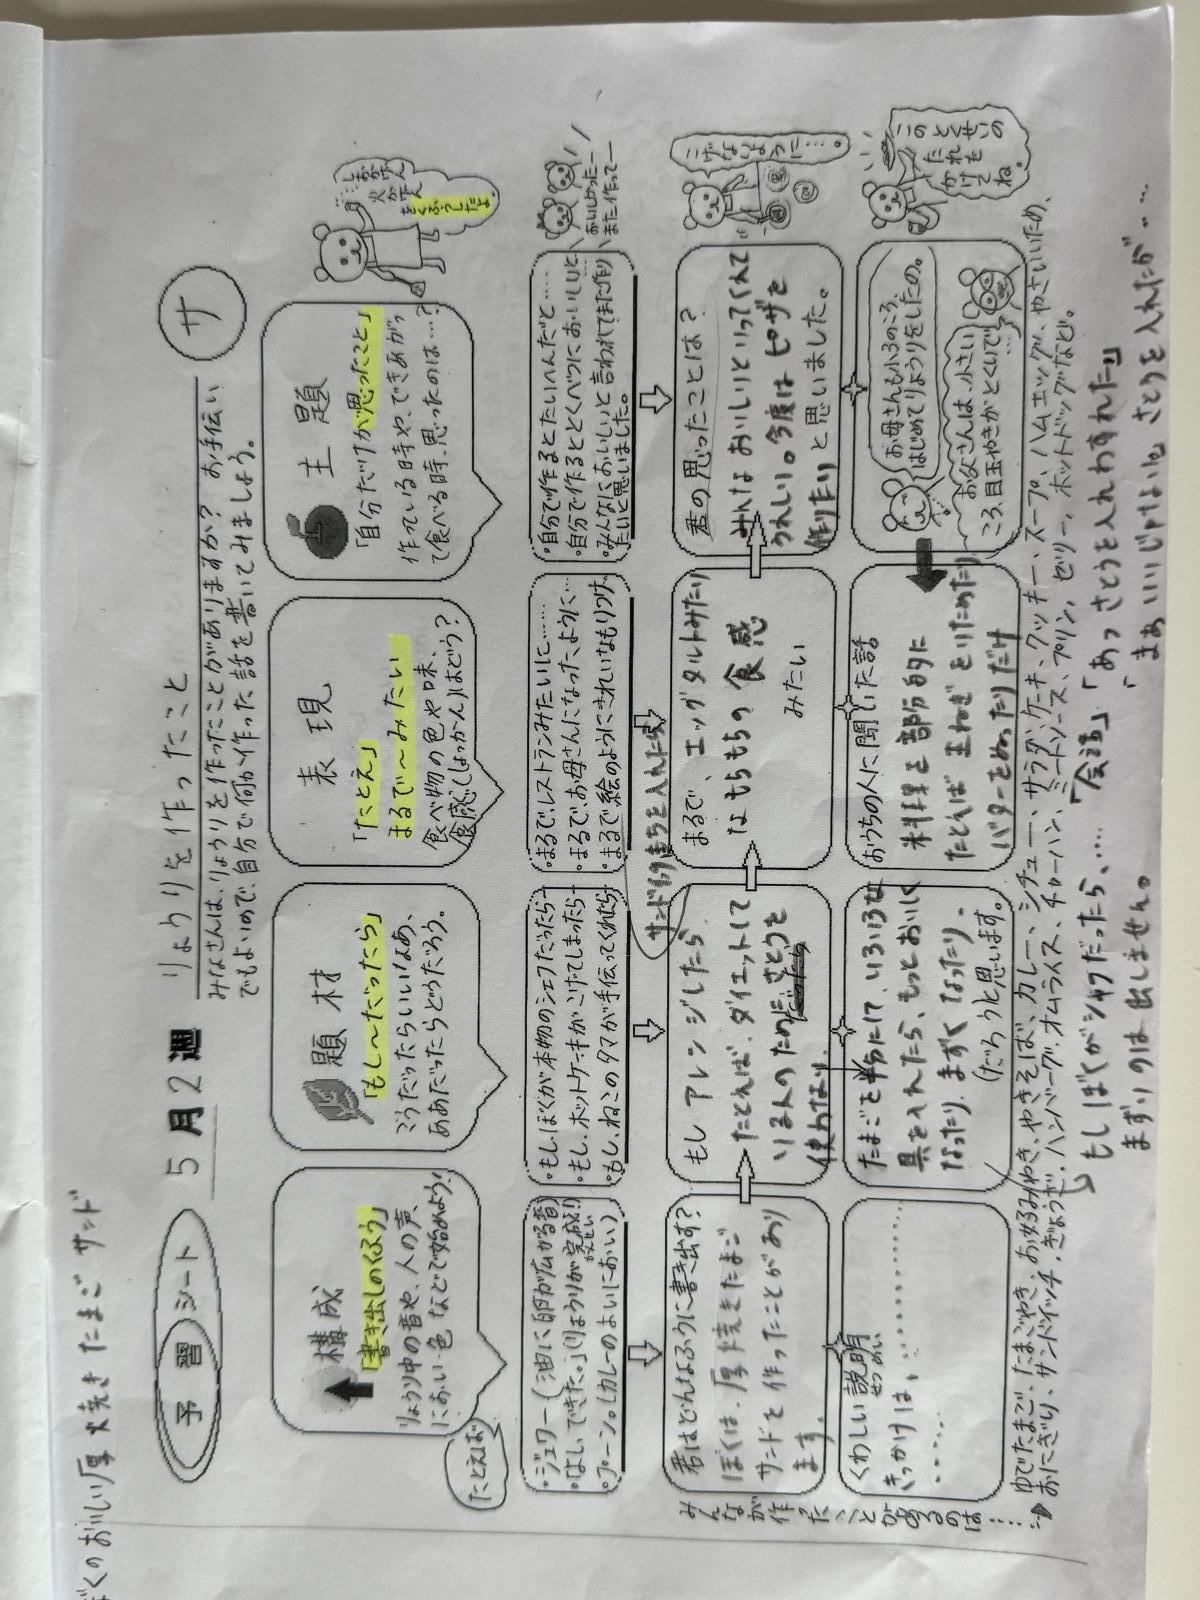 ぼくのおいしい厚焼きたまごサンド
予習シート 5月2週 りょうりを作ったこと サ
みなさんは、りょうりを作ったことがありますか？お手伝い
でもよいので、自分で何か作った話を書いてみましょう。
構成
「書き出しのくふう」
りょうり中の音や、人の声、
におい・色などで始めよう！
題材
「もし〜だったら」
こうだったらいいなあ、
ああだったらどうだろう。
表現
「たとえ」
まるで〜みたい
食べ物の色や味、
食感(しょっかん)はどう？
主題
「自分だけが思ったこと」
作っている時や、できあがっ
て食べる時、思ったのは…？
火かげん
をくふうしたよ
たとえば
・ジュワー（油に卵が広がる音）
・「よし、できた。」(りょうりが完成！)
・プーン。(カレーのよいにおい)
・もし、ぼくが本物のシェフだったら…
・もし、ホットケーキがこげてしまったら…
・もし、ねこのタマが手伝ってくれたら…
・まるで、レストランみたいに……
・まるで、お母さんになったように…
・まるで絵のようにきれいなもりつけ
・自分で作るとたいへんだと……
・自分で作るととくべつにおいしいと
・みんなに「おいしい」と言われてまた作り
たいと思いました。
おいしかったー
また作ってー
君はどんなふうに書き出す？
ぼくは、厚焼きたまご
サンドを作ったことがあり
ます。
もしアレンジしたら
たとえば、ダイエットして
いる人のためにさとうを
使わない
サンドイッチにもちを入れたら
まるで、エッグタルトみたい
なもちもちの食感
みたい
君の思ったことは？
みんなおいしいといってくれて
うれしい。今度はピザを
作りたいと思いました。
こげないように…。
みんなが作ったことがあるのは……
くわしい説明
せつめい
きっかけは、
たまごを半分にして、いろいろな
具を入れたら、もっとおいしく
なったり、まずくなったり。
(だろうと思います。)
おうちの人に聞いた話
料理を部分的に
たとえば玉ねぎをいためたり
バターをぬったりだけ
お母さんも小3のころ、
はじめてりょうりをしたの。
お父さんは、小さい
ころ、目玉やきがとくいで
…
このとくせいの
たれを
かけて
ね。
ゆでたまご、たまごやき、お好みやき、やきそば、カレー、シチュー、サラダ、ケーキ、クッキー、スープ、ハムエッグ、やさいいため、
おにぎり、サンドイッチ、ぎょうざ、ハンバーグ、オムライス、チャーハン、ミートソース、プリン、ゼリー、ホットドッグなど。
もしぼくがシェフだったら、…
まずいのは出しません。
「会話」「あっさとうを入れわすれた」
「まあいいじゃないか。さとうを入れたが…